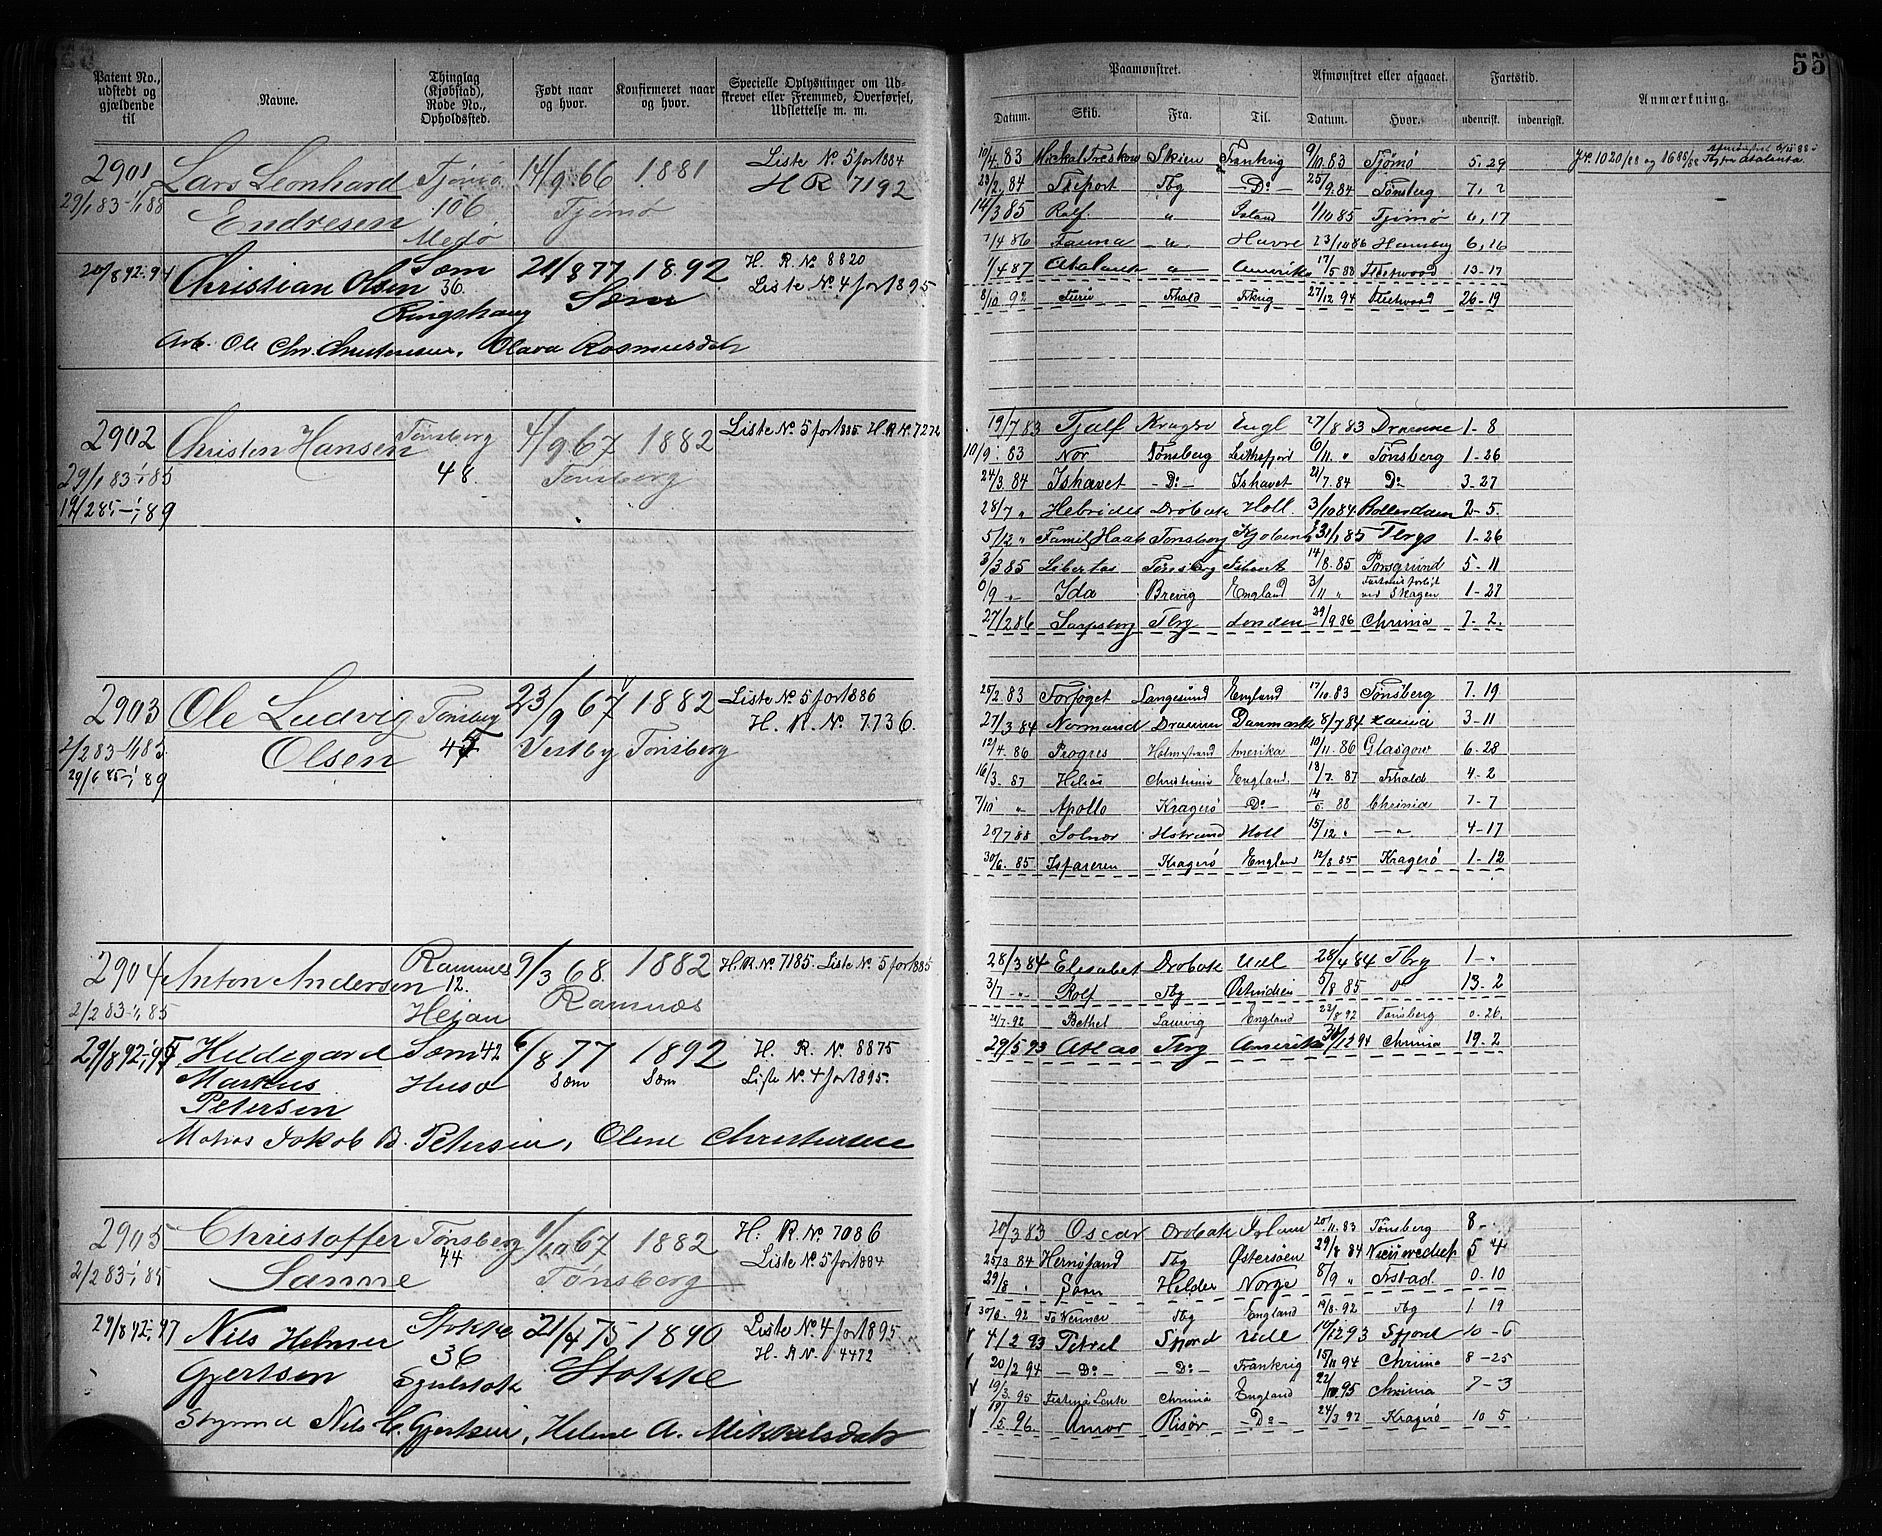 55
Patent No., udstedt og gjældende til
Navne.
Thinglag (Kjøbstad), Rode No., Opholdssted.
Født naar og hvor.
Konfirmeret naar og hvor.
Specielle Oplysninger om Udskrevet eller Fremmed, Overførsel, Udslettelse m. m.
Paamønstret.
Datum. Skib. Fra. Til.
Afmønstret eller afgaaet.
Datum. Hvor.
Fartstid.
udenrigsk. indenrigsk.
Anmærkning.
2901 Lars Leonhard Tjömö 14/9 66 1881 Liste No 5 for 1884
29/1 83-1/1 88 Endresen 106 Tjömö H R 7192
Medö
20/8 92- Christian Olsen Sœm 1892 H. R. No 8820
36. Sœm Liste No 4 for 1895
Ringshaug
Arb. Ole Chr. Christensen, Olava Rasmusdatr
2902 Christen Hansen Tønsberg 4/9 67 1882 Liste No 5 for 1885. H. R. No 7272
29/1 83-1/1 85 48. Tønsberg
19/2 85-1/1 89
2903 Ole Ludvig Tønsberg 23/9 67 1882 Liste No 5 for 1886
2/2 83-1/1 85 Olsen Vestby Tønsberg H. R. No. 7736.
29/6 85-1/1 89
2904 Anton Andersen Ramnes 9/3 68. 1882 H. R. No 7185. Liste No 5 for 1885
2/2 83-1/1 85 12. Ramnœs
29/8 92- Hildegard Sœm 42 6/8 77 1892 H. R. No. 8875
Markus Husø Sœm Sœm Liste No. 4 for 1895.
Petersen
Jakob B. Petersen, Olene Christensen
2905 Christoffer Tønsberg 67 1882 H. R. No 7086
2/2 83-1/1 85 Sanne 44 Tønsberg Liste No 5 for 1884
29/8 92- 97 Nils Helmer Stokke 21/4 75 1890 Liste No 4 for 1895
Gjertsen 36 Stokke H. R. No. 4472
Nils C. Gjertsen, Helene A. Mikkelsdatr
10/4. 83 Skien Frankrig 9/10 83 Tjömö 5. 29
84 Treport Tbg D:o 25/9. 84 Tønsberg
14/3 85 Rolf. " Island 1/10 85 Tjömö 6, 17
86 Fauna " Havre 23/10 86 Hamburg
1/4 87 Atalanta " Amerika 17/5 88 Fleetwood 13-17
8/10 92 Fhald 27/12 94 Fleetwood 26-19
19/7 83 Tjalf Kragerø Engl 27/8 83 Drammen 1-8
10/9. 83 Nor Tønsberg 6/11. " Tønsberg 1-26
24/3. 84 Ishavet D:o Ishavet 21/7. 84 D:o 3-27
28/7 " Hebrides Drøbak Holl 3/10 84 2-5.
5/12 " Famil Haab Tønsberg 85 1-26
3/3 85 Libertas Tønsberg 14/8. 85 Porsgrund 5-11
Ida Brevig England 3/11 " ved Skagen 1-27
27/2 86 Sarpsborg Tbg London 29/9. 86 Chrinia 7-2.
25/2 83 Forsøget Langesund England 17/10 83 Tønsberg 7. 19
27/3 84 Normand Drammen Danmark 8/7 84 3-11
12/4. 86 Progres Holmestrand Amerika 10/11. 86 Glasgow 6-28
16/3. 87 Helios Christiania England. 18/7. 87 Fhald 4-2
7/10 " Apollo Kragerø D:o 88 Chrinia 7-7
88 Solnor Holl 15/12 " 4-17
30/6. 85 Kragerø England 12/8 85 Kragerø 1-12
28/3 84 Elisabet Drøbak Udl 28/4 84 Tbg 1-"
3/7 Rolf Tbg Ostindien 85 13-2
92 Bethel Laurvig England 23/8. 92 Tønsberg 0-26.
29/5 93 Atlas Tbg Amerika 94 Chrinia 19-2
20/3 83 Oscar Drøbak 20/11. 83 Tønsberg 8-
25/3 84 Hernösand Tbg Østersøen 29/8 84 Nieuwediep 5 4
29/8 " Helder Norge 8/9 " Frstad 0-10
92 Tbg England 19/8. 92 Tbg 1 19
4/2 93 Petrel Sfjord Udl 93 Sfjord 10-6
20/2 94 D:o D:o Frankrig 15/11 94 Chrinia 8-25
19/3. 95 Festina Lente Chrinia England 95 Chrinia 7-3
96 Amor Risør D:o 24/3 97 Kragerø 10 5